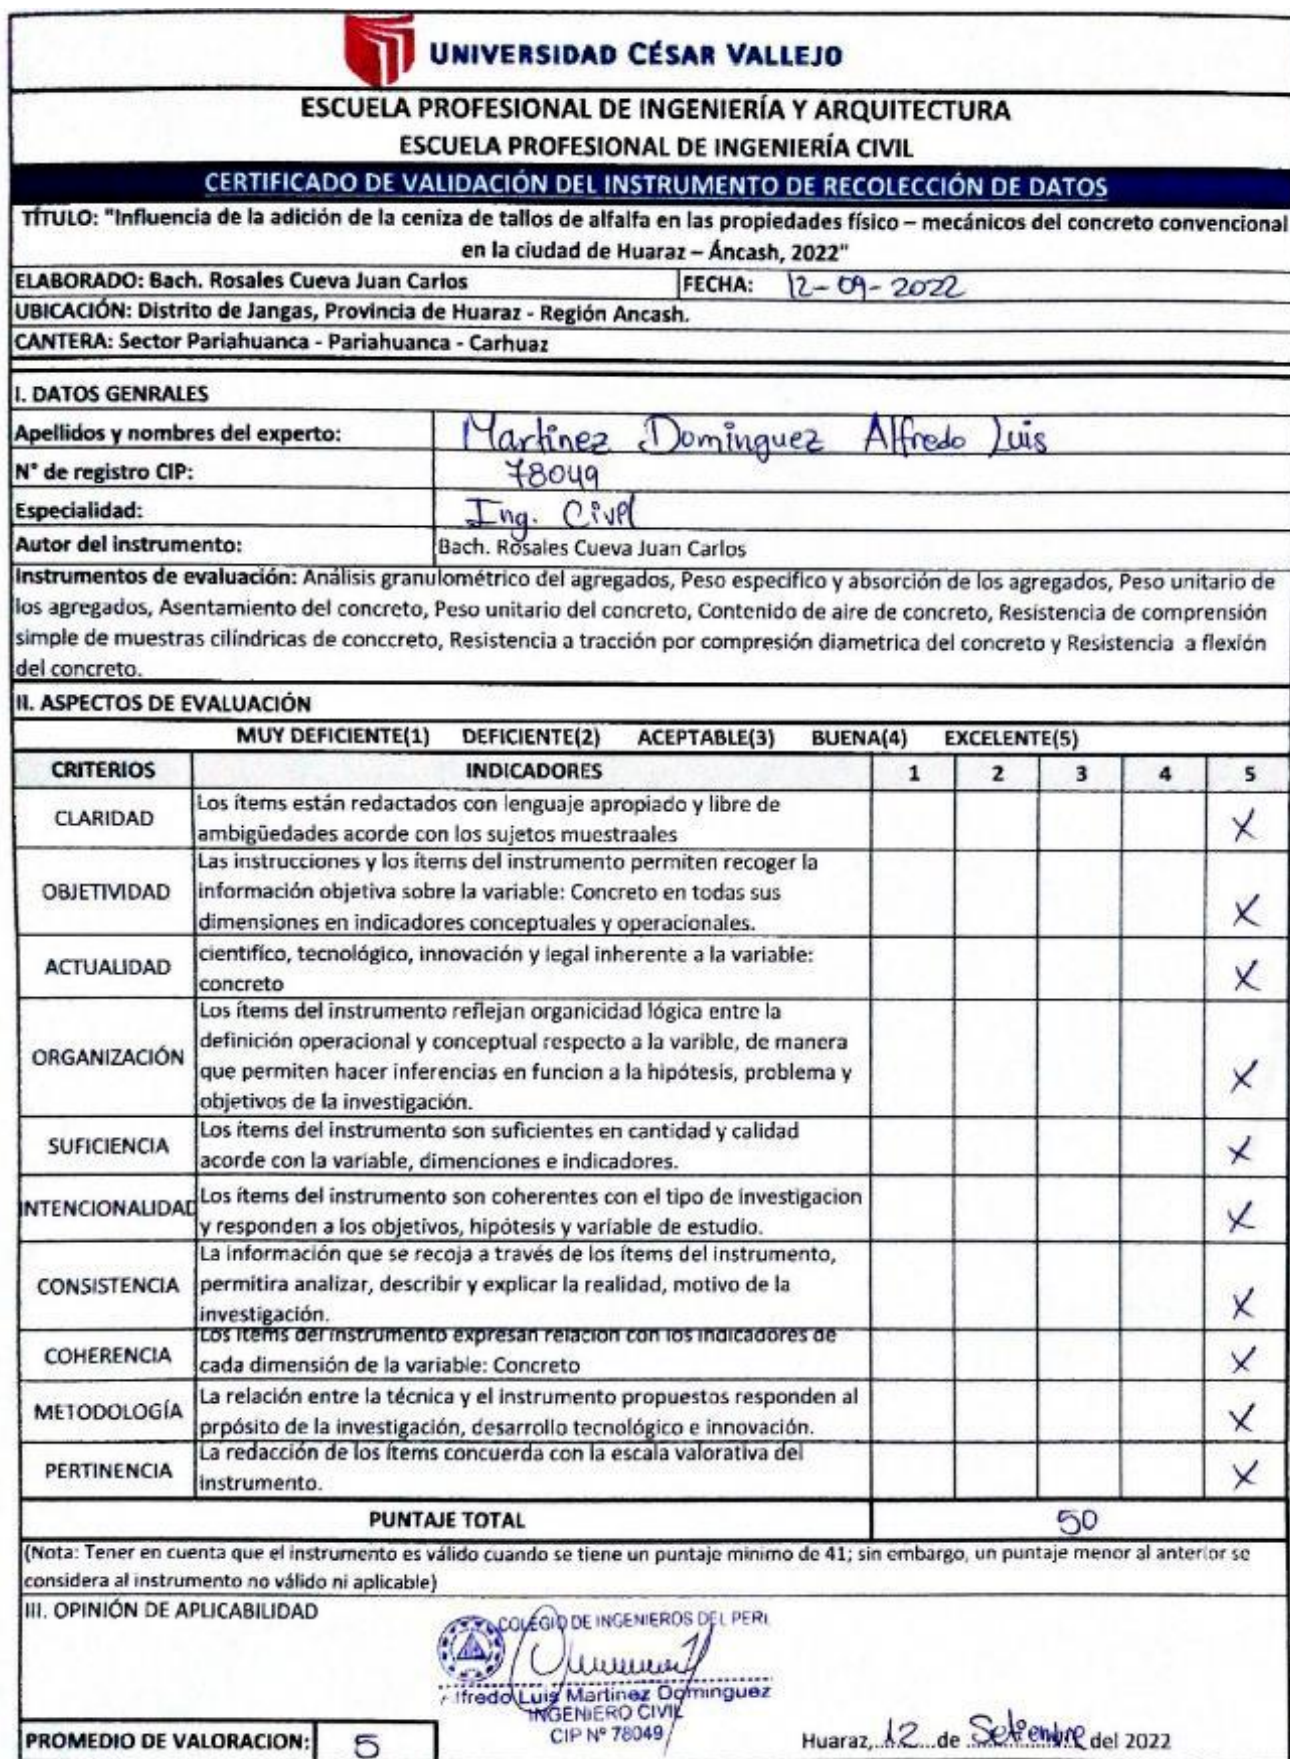 UNIVERSIDAD CÉSAR VALLEJO
ESCUELA PROFESIONAL DE INGENIERÍA Y ARQUITECTURA
ESCUELA PROFESIONAL DE INGENIERÍA CIVIL
CERTIFICADO DE VALIDACIÓN DEL INSTRUMENTO DE RECOLECCIÓN DE DATOS
TÍTULO: "Influencia de la adición de la ceniza de tallos de alfalfa en las propiedades físico – mecánicos del concreto convencional
en la ciudad de Huaraz – Áncash, 2022"
ELABORADO: Bach. Rosales Cueva Juan Carlos FECHA: 12-09-2022
UBICACIÓN: Distrito de Jangas, Provincia de Huaraz - Región Ancash.
CANTERA: Sector Pariahuanca - Pariahuanca - Carhuaz
I. DATOS GENRALES
Apellidos y nombres del experto: Martinez Dominguez Alfredo Luis
N° de registro CIP: 78049
Especialidad: Ing. Civil
Autor del instrumento: Bach. Rosales Cueva Juan Carlos
Instrumentos de evaluación: Análisis granulométrico del agregados, Peso especifico y absorción de los agregados, Peso unitario de
los agregados, Asentamiento del concreto, Peso unitario del concreto, Contenido de aire de concreto, Resistencia de comprensión
simple de muestras cilíndricas de conccreto, Resistencia a tracción por compresión diametrica del concreto y Resistencia a flexión
del concreto.
II. ASPECTOS DE EVALUACIÓN
MUY DEFICIENTE(1) DEFICIENTE(2) ACEPTABLE(3) BUENA(4) EXCELENTE(5)
CRITERIOS INDICADORES 1 2 3 4 5
CLARIDAD Los ítems están redactados con lenguaje apropiado y libre de
ambigüedades acorde con los sujetos muestraales X
OBJETIVIDAD Las instrucciones y los ítems del instrumento permiten recoger la
información objetiva sobre la variable: Concreto en todas sus
dimensiones en indicadores conceptuales y operacionales. X
ACTUALIDAD científico, tecnológico, innovación y legal inherente a la variable:
concreto X
ORGANIZACIÓN Los ítems del instrumento reflejan organicidad lógica entre la
definición operacional y conceptual respecto a la varible, de manera
que permiten hacer inferencias en funcion a la hipótesis, problema y
objetivos de la investigación. X
SUFICIENCIA Los ítems del instrumento son suficientes en cantidad y calidad
acorde con la variable, dimenciones e indicadores. X
INTENCIONALIDAD Los ítems del instrumento son coherentes con el tipo de investigacion
y responden a los objetivos, hipótesis y variable de estudio. X
CONSISTENCIA La información que se recoja a través de los ítems del instrumento,
permitira analizar, describir y explicar la realidad, motivo de la
investigación. X
COHERENCIA Los ítems del instrumento expresan relación con los indicadores de
cada dimensión de la variable: Concreto X
METODOLOGÍA La relación entre la técnica y el instrumento propuestos responden al
prpósito de la investigación, desarrollo tecnológico e innovación. X
PERTINENCIA La redacción de los ítems concuerda con la escala valorativa del
instrumento. X
PUNTAJE TOTAL 50
(Nota: Tener en cuenta que el instrumento es válido cuando se tiene un puntaje minimo de 41; sin embargo, un puntaje menor al anterior se
considera al instrumento no válido ni aplicable)
III. OPINIÓN DE APLICABILIDAD
COLEGIO DE INGENIEROS DEL PERU
Alfredo Luis Martinez Dominguez
INGENIERO CIVIL
CIP N° 78049
PROMEDIO DE VALORACION: 5
Huaraz, 12 de Setiembre del 2022